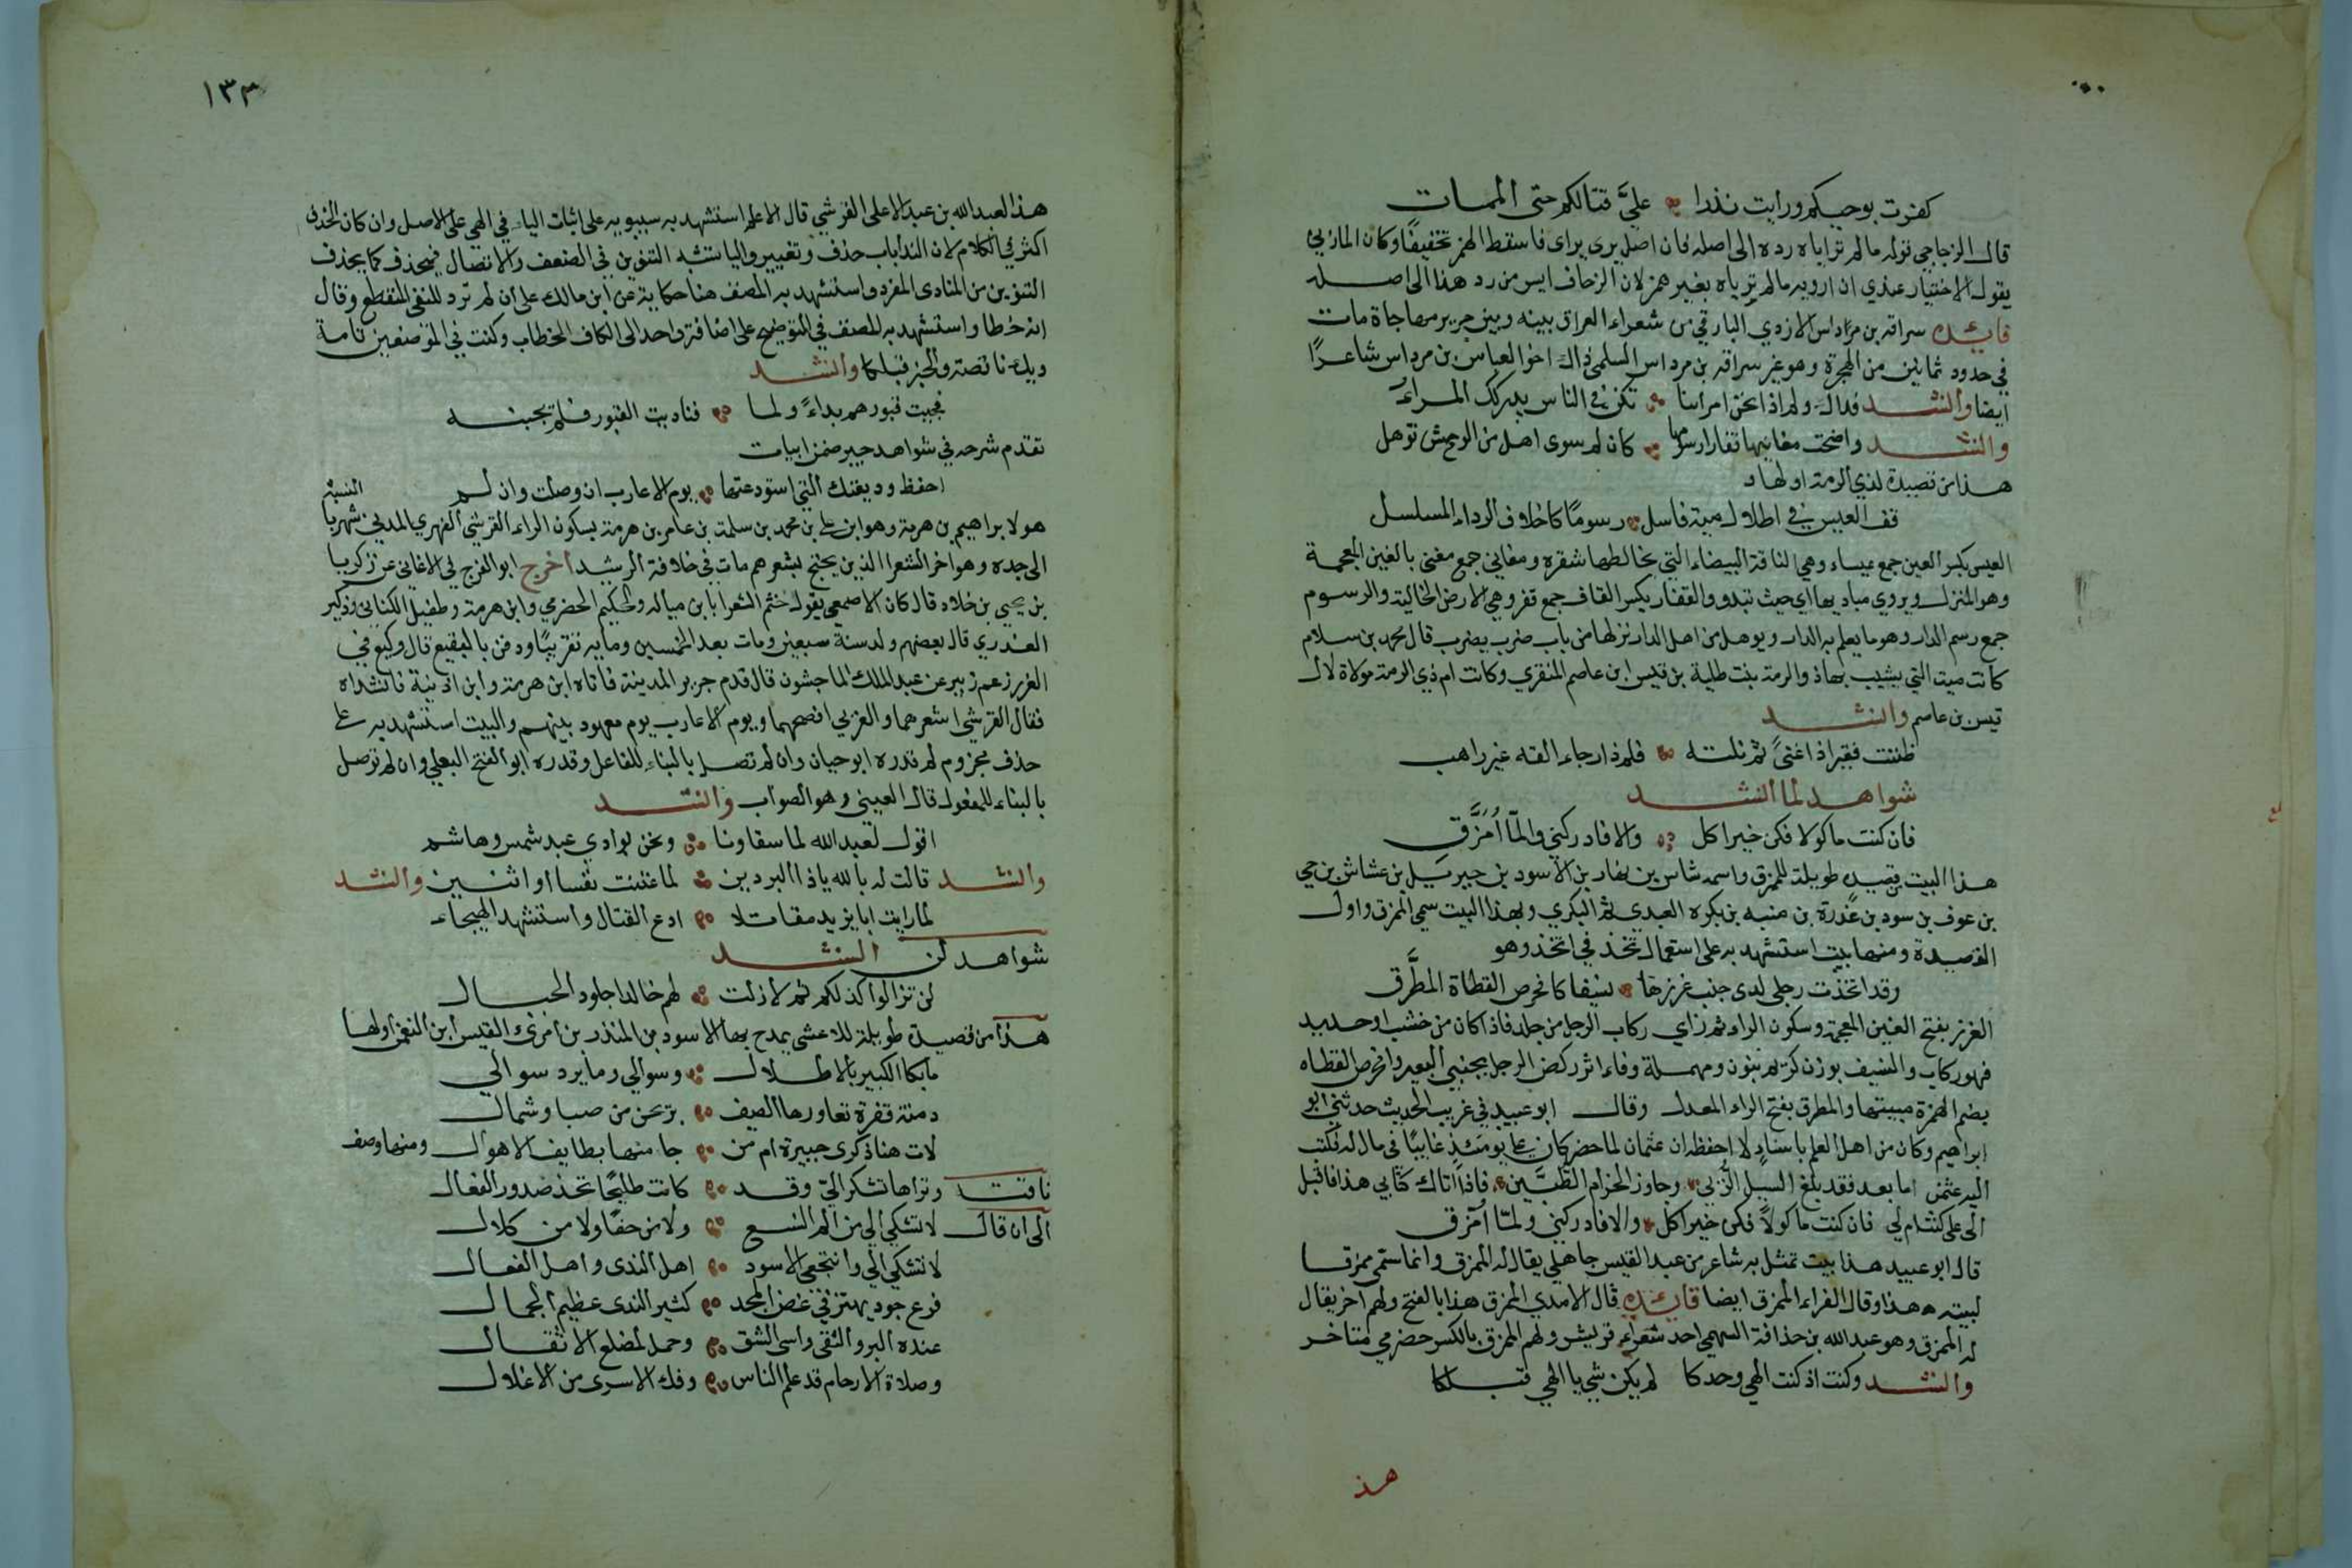 كفرت بوحيكم ورايت نذرا علىَّ قتالكم حتى الممات
قال الزجاجي قوله مالم تراياه رده الى اصله لان اصل يرى يراى فاسقط الهمز تخفيفا وكان المازني
يقول الاختيار عندي ان ارويه مالم تَرَياه بغير همز لان الزحاف ايسر من رد هذا الى اصله
فايدة سراقه بن مرداس الازدي البارقي من شعراء العراق بينه وبين جرير مهاجاة مات
في حدود ثمانين من الهجرة وهو غير سراقه بن مرداس السلمي ذاك اخو العباس بن مرداس شاعرًا
ايضا وانشد فذاك ولم اذا نحن امترينا تكن في الناس يدركك المراءُ
وانشد واضحت مغانيها قفارا رسومها كان لم سوى اهل من الوحش توهل
هذا من قصيدة لذي الرمة اولها
قف العيس في اطلال مية فاسل رسومًا كاخلاق الرداء المسلسل
العيس بكسر العين جمع عيساء وهي الناقة البيضاء التي يخالطها شقره ومغاني جمع مغنى بالغين المعجمة
وهو المنزل ويروى مباديها اي حيث تبدو والقفار بكسر القاف جمع قفر وهي الارض الخالية والرسوم
جمع رسم الدار وهو ما يعلم به الدار ويوهل من اهل الدار نزلها من باب ضرب يضرب قال محمد بن سلام
كانت مية التي يشبب بها ذو الرمة بنت طلبة بن قيس ابن عاصم المنقري وكانت ام ذي الرمة مولاة لال
قيس بن عاصم وانشد
ظننت فقيرا ذا غنىً ثم نلته فلم ذا رجاء القه غير راهب
شواهد لما انشد
فان كنت ماكولا فكن خير اكل والا فادركني ولمّا اُمَزَّقِ
هذا البيت من قصيدة طويلة للممزق واسمه شاس بن نهار بن الاسود بن جبر سل بن عشاش بن حي
بن عوف بن سود بن عذرة بن منبه بن بكره العبدي ثم البكري وبهذا البيت سمي الممزق واول
القصيدة ومنها بيت استشهد به على استعمال تخذ في اتخذ وهو
وقد اتخذت رجلي لدى جنب غرزها نسيفا كافحوص القطاة المطرَّق
الغرز بفتح الغين المعجمة وسكون الراء ثم زاي ركاب الرحل من جلد فاذا كان من خشب او حديد
فهو ركاب والنسيف بوزن كريم بنون ومهملة وفاء اثر ركض الرجل بجنبي البعير وافحوص القطاه
بضم الهمزة مبيتها والمطرق بفتح الراء المعدل وقال ابو عبيد في غريب الحديث حدثني ابو
ابراهيم وكان من اهل العلم باسناد لا احفظه ان عثمان لما حضر كان علي يومئذ غايبًا في مال له فكتب
اليه عثمن اما بعد فقد بلغ السيل الزبى وجاوز الحزام الطبيين فاذا اتاك كتابي هذا فاقبل
الي علي كنت ام لي فان كنت ماكولاً فكن خير اكل والا فادركني ولمّا امزق
قال ابو عبيد هذا بيت تمثل به شاعر من عبد القيس جاهلي يقال له الممزق وانما سمي ممزقا
لبيته هذا وقال الفراء الممزق ايضا فايدة قال الامدي الممزق هذا بالفتح ولهم اخر يقال
له الممزق وهو عبد الله بن حذافة السهمي احد شعراء قريش ولهم الممزق بالكسر حضرمي متاخر
وانشد وكنت اذ كنت الهي وحدكا لم يكن شي يا الهي قبلكا
هذ
١٣٣
هذا لعبد الله بن عبد الاعلى القرشي قال الاعلم استشهد به سيبويه على اثبات الياء في الهي على الاصل وان كان الحذف
اكثر في الكلام لان النداء باب حذف وتغيير والياء تشبه التنوين في الضعف والاتصال فتحذف كما يحذف
التنوين من المنادى المفرد واستشهد به المصنف هنا حكاية عن ابن مالك على أن لم ترد للنفي المنقطع وقال
انه خطا واستشهد به المصنف في التوضيح على اضافة واحد الى الكاف الخطاب وكنت في الموضعين تامة
ويك ناقصة والخبر قبلكا وانشد
فجيت قبورهم بداءً ولما فناديت القبور فلم يجبنه
تقدم شرحه في شواهد جير ضمن ابيات
احفظ وديعتك التي استودعتها يوم الاعارب ان وصلت وان لم
هو لابراهيم بن هرمة وهو ابن علي بن محمد بن سلمة بن عامر بن هرمة بسكون الراء القرشي الفهري المدني شهر با النسبة
الى جده وهو اخر الشعرا الذين يحتج بشعرهم مات في خلافة الرشيد اخرج ابو الفرج في الاغاني عن زكريا
بن يحيى بن خلاد قال كان الاصمعي يقول ختم الشعرا بابن ميادة والحكم الحضرمي وابن هرمة وطفيل الكناني ودكين
العذري قال بعضهم ولد سنة سبعين ومات بعد الخمسين ومايه تقريبًا ودفن بالبقيع قال وكيع في
الغرر زعم زبير عن عبد الملك الماجشون قال قدم جرير المدينة فاتاه ابن هرمة وابن اذينة فانشداه
فقال القرشي اشعرهما والعربي افصحهما ويوم الاعارب يوم معهود بينهم والبيت استشهد به على
حذف مجزوم لم قدره ابو حيان وان لم تصل بالبناء للفاعل وقدره ابو الفتح البعلي وان لم توصل
بالبناء للمفعول قال العيني وهو الصواب وانشد
اقول لعبد الله لما سقاونا ونحن بوادي عبد شمس وهاشم
وانشد قالت له بالله ياذا البردين لما غنثت نفسا او اثنين وانشد
لما رايت ابا يزيد مقاتلا ادع القتال واشهد الهيجاء
شواهد لن انشد
لن تزالوا كذلكم ثم لا زلت لهم خالدا خلود الجبال
هذا من قصيدة طويلة للاعشى يمدح بها الاسود بن المنذر بن امرئ القيس ابن النعمن اولها
مابكا الكبير بالاطلال وسوالي وما يرد سوالي
دمنة قفرة تعاورها الصيف بريحين من صبا وشمال
لات هنا ذكرى جبيرة ام من جا منها بطايف الاهوال ومنها وصف
ناقته وتراها تشكو اليّ وقد كانت طليحًا تحذ صدور النعال
الى ان قال لا تشكي الي من الم النسع ولا من حفًا ولا من كلال
لا تشكي الي وانتجعي الاسود اهل الندى واهل الفعال
فرع جود يهتز في غصن المجد كثير الندى عظيم الجمال
عنده البر والتقى واسى الشق وحمل لمضلع الاثقال
وصلاة الارحام قد علم الناس وفك الاسرى من الاغلال